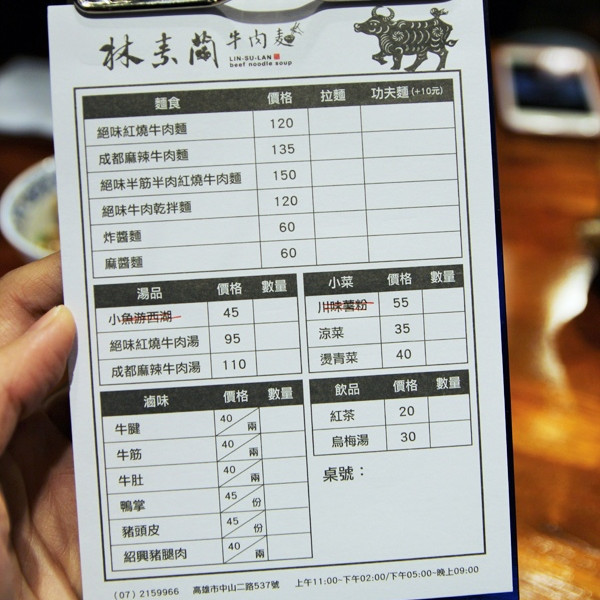 林素蘭牛肉麵
LIN-SU-LAN
beef noodle soup
麵食 價格 拉麵 功夫麵(+10元)
絕味紅燒牛肉麵 120
成都麻辣牛肉麵 135
絕味半筋半肉紅燒牛肉麵 150
絕味牛肉乾拌麵 120
炸醬麵 60
麻醬麵 60
湯品 價格 數量
小魚游西湖 45
絕味紅燒牛肉湯 95
成都麻辣牛肉湯 110
小菜 價格 數量
川味薯粉 55
涼菜 35
燙青菜 40
滷味 價格 數量
牛腱 40/兩
牛筋 40/兩
牛肚 40/兩
鴨掌 45/份
豬頭皮 45/份
紹興豬腿肉 40/兩
飲品 價格 數量
紅茶 20
烏梅湯 30
桌號：
(07) 2159966 高雄市中山二路537號 上午11:00~下午02:00/下午05:00~晚上09:00